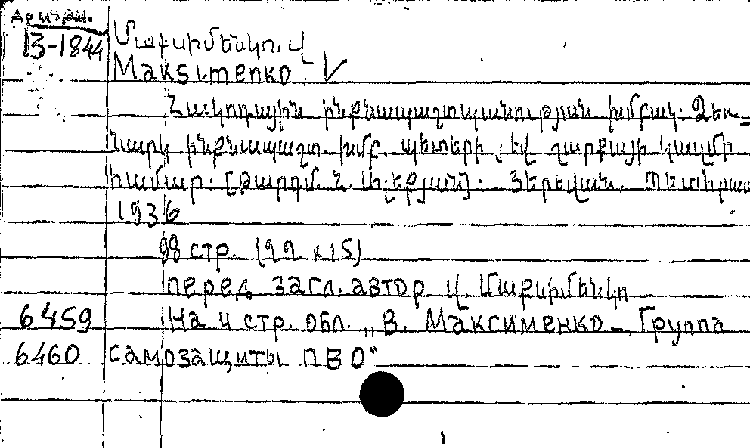 13-1844
Մաքսիմենկո. Վ
Maksimenko V
Հակոդային ինքնապաշտպանության խմբակ. Ձեռ-
նարկ ինքնապաշտ. խմբ. պետերի և շարքային կազմի
համար. [Թարգմ. Ն. Ալեքյան]. Յերեվան. Պետհրատ
1936
98 стр. (22 x 15)
перед загл. автор Վ. Մաքսիմենկո
6459 На 4 стр. обл. „В. Максименко – Группа
6460 самозащиты ПВО“